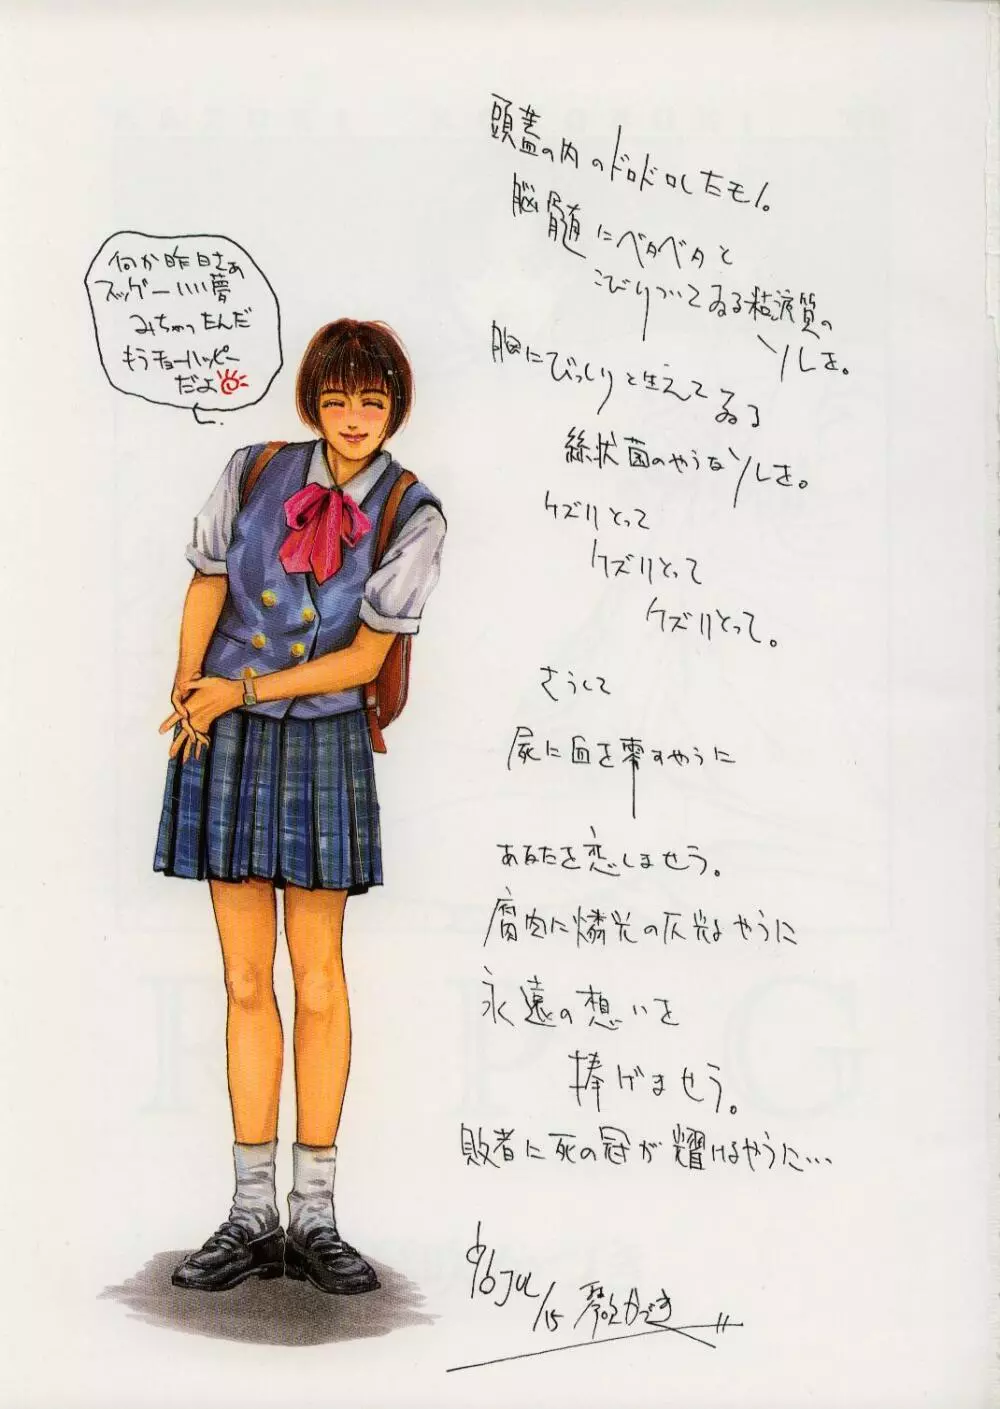 何か昨日さぁ
スッゲーいい夢
みちゃったんだ
もうチョーハッピー
だよ
頭蓋の内のドロドロしたモノ。
脳髄にベタベタと
こびりついてゐる粘液質の
ソレを。
胸にびっしりと生えてゐる
絲状菌のやうなソレを。
ケズリとって
ケズリとって
ケズリとって。
さうして
屍に血を零すやうに
あなたを恋しませう。
腐肉に燐光の仄光るやうに
永遠の想いを
捧げませう。
敗者に死の冠が耀けるやうに…
'96 JUL
/15